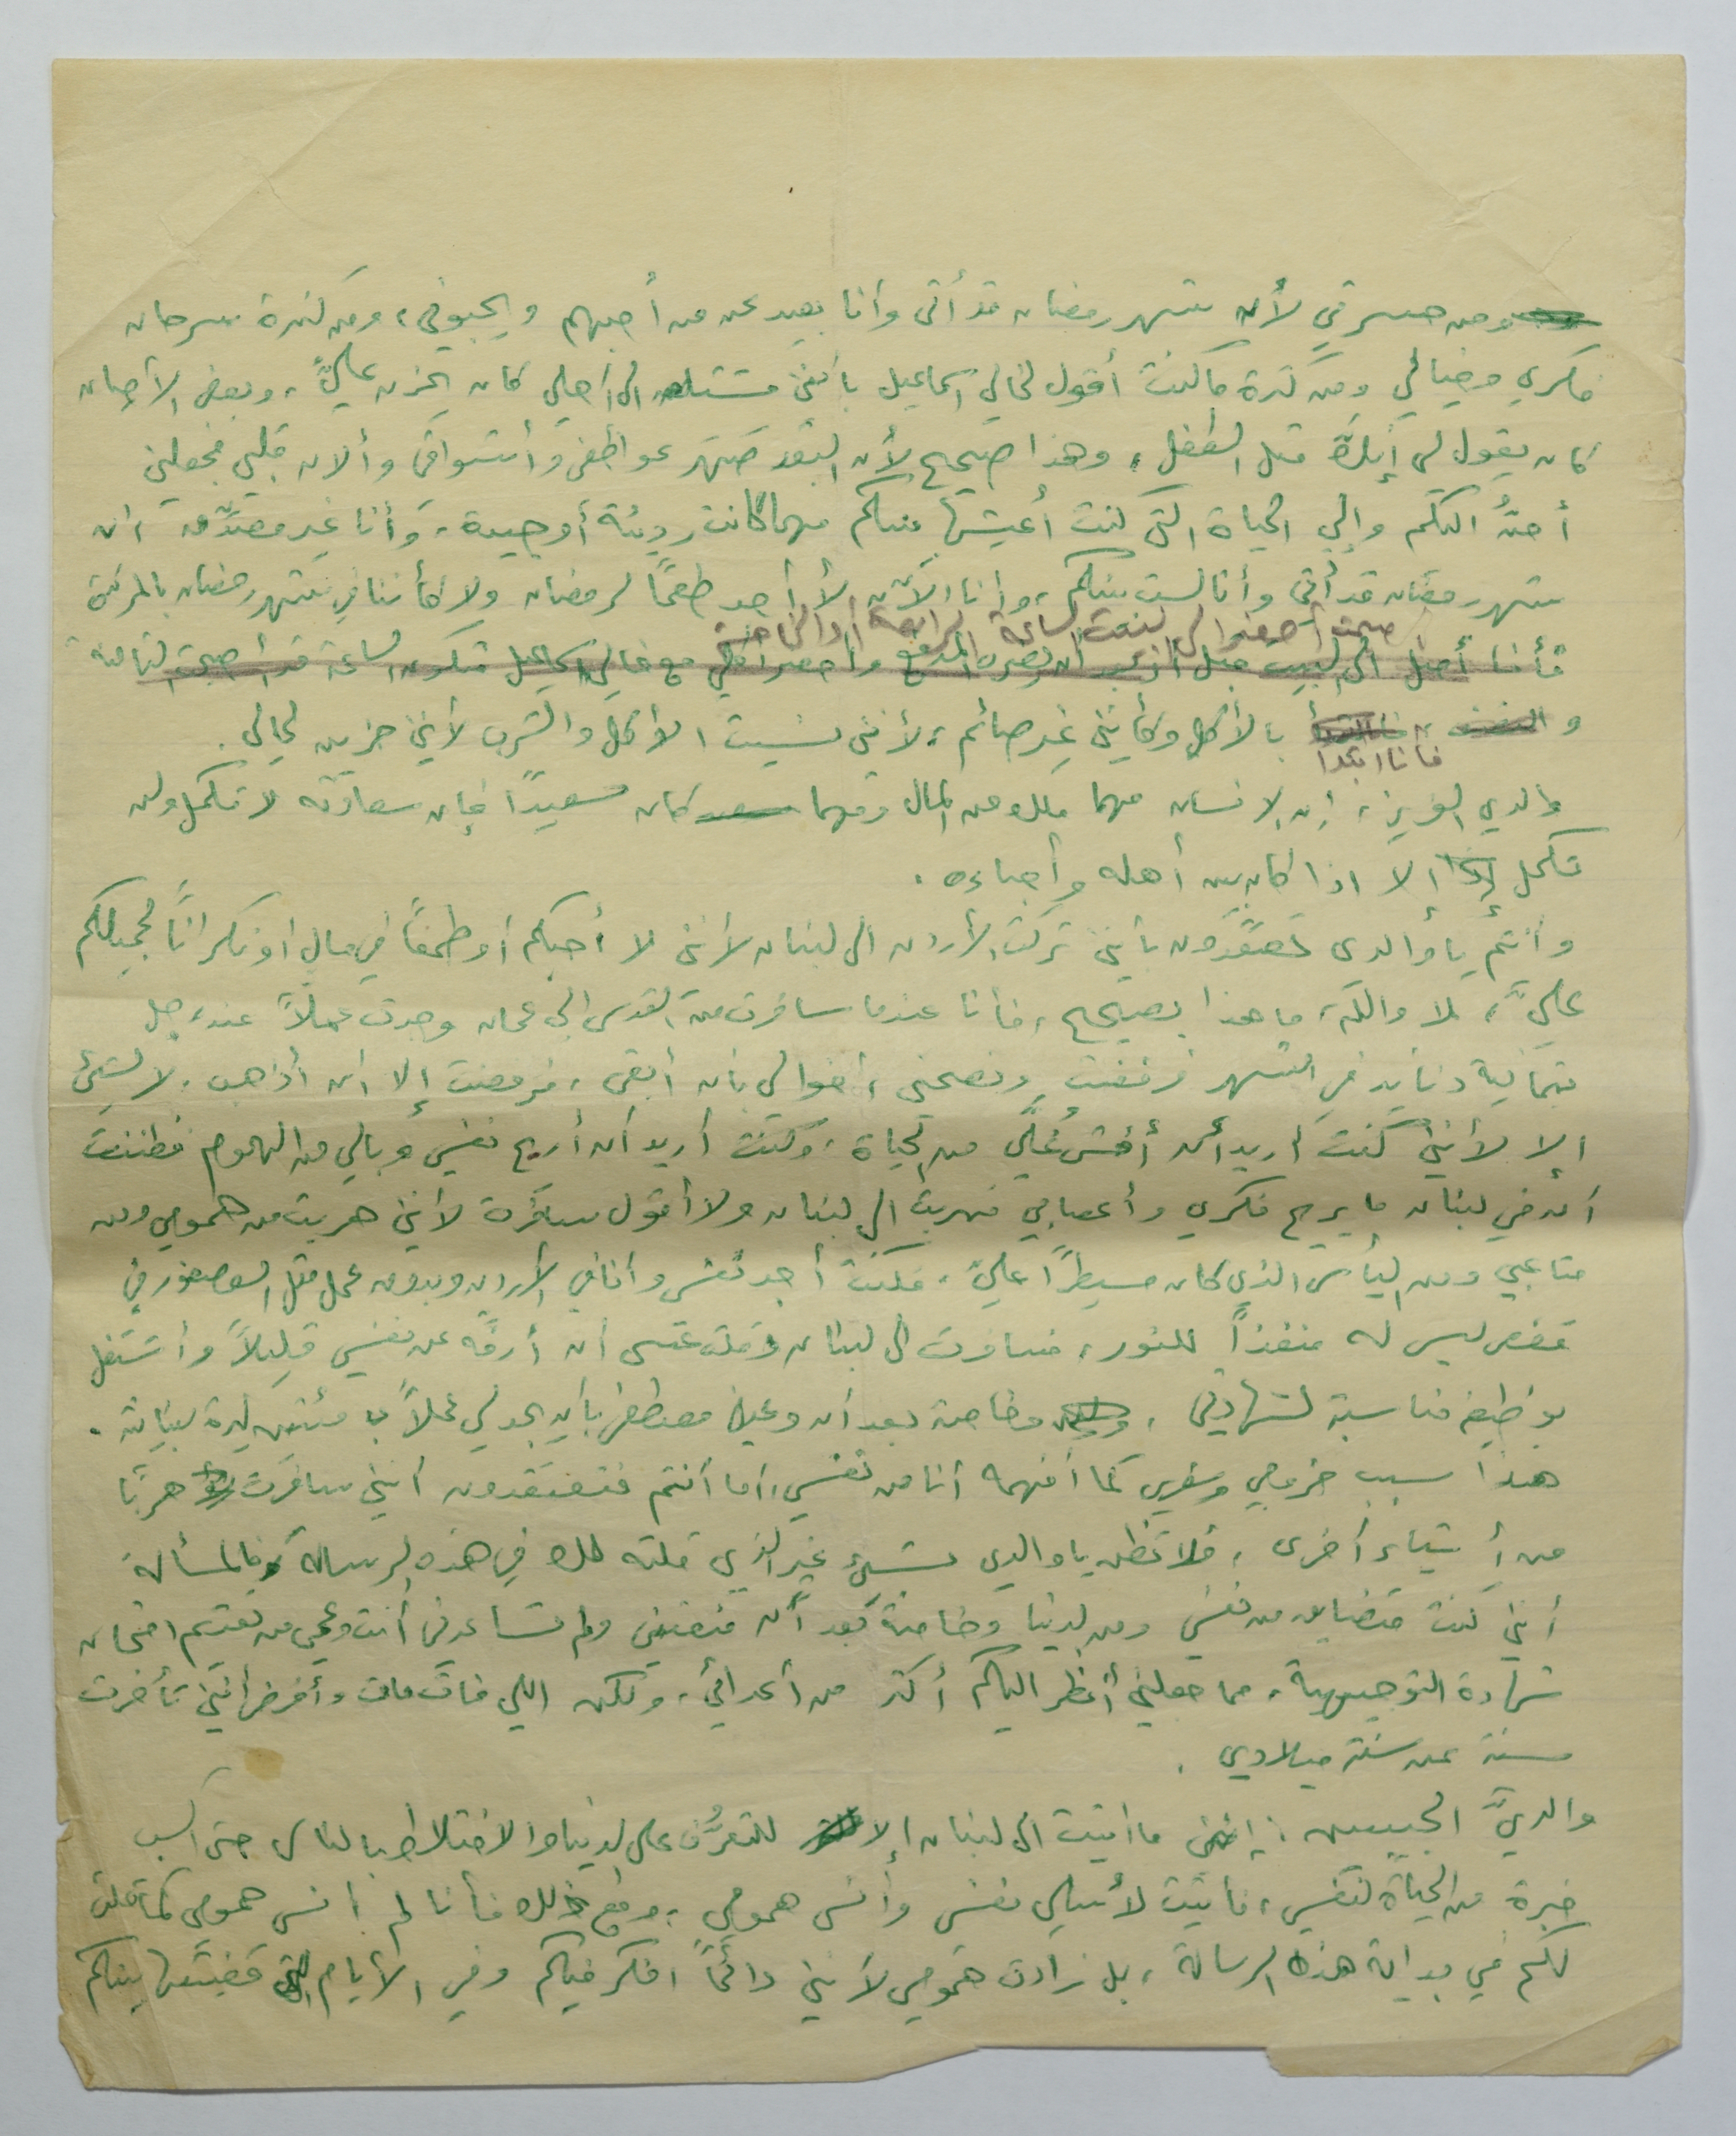 ومن حسرتي لأن شهر رمضان قد أتى وأنا بعيد عن من أحبهم ويحبوني، ومن كثرة سرحان
فكري وخيالي ومن كثرة ما كنت أقول لخالي اسماعيل بأنني مشتاق الى أهلي كان يحزن عليّ، وبعض الأحيان
كان يقول لي إنك مثل الطفل، وهذا صحيح لأن البعد صهر عواطفي وأشواقي وألان قلبي فجعلني
أحنُّ اليكم والى الحياة التي كنت أعيشها بينكم مهما كانت رديئة أو جيدة، وأنا غير مصدّق ان
شهر رمضان قد أتى وأنا لست بينكم، وأنا الآن لا أجد طعمًا لرمضان ولا كأننا في شهر رمضان بالمرة
الساعة الرابعة أو الخامسة
فأنا أصل الى البيت قبل أن يضرب المدفع وأحضر أكلي مع خالي اسماعيل فتكون الساعة قد أصبحت الثالثة
و بالأكل وكأنني غير صائم، لأنني نسيت الأكل والشرب لأنني حزين لحالي.
فأنا ابدأ
والدي العزيز، إن الانسان مهما ملك من المال ومهما كان سعيدًا فإن سعادته لا تكمل ولن
تكمل إلا اذا كان بين أهله وأحباءه.
وأنتم يا والدي تعتقدون بأنني تركت الأردن الى لبنان لأنني لا أحبكم أو طمعًا في مال أو نكرانًا لجميلكم
عليّ، لا والله، ما هذا بصحيح، فأنا عندما سافرت من القدس الى عمان وجدت عملاً عند رجل
بثمانية دنانير في الشهر فرفضت ونصحني أخوالي بأن أبقى، فرفضت إلا ان أذهب، لا لشيئ
إلا لأنني كنت أريد أن أفتش عليّ من الحياة، وكنت أريد أن أريح نفسي وبالي من الهموم فظننت
أن في لبنان ما يريح فكري وأعصابي فهربت الى لبنان ولا أقول سافرت لأنني هربت من همومي ومن
متاعبي ومن اليأس الذي كان مسيطرًا عليّ، فكنت أجد نفسي وأنا في الأردن وبدون عمل مثل العصفور في
قفص ليس له منفذًا للنور، فسافرت الى لبنان وقلت عسى ان أرفّه عن نفسي قليلاً وأشتغل
بوظيفة مناسبة لشهادتي، وخاصة بعد أن وعدني مصطفى بأن يجد لي عملاً بـ مئتين ليرة لبنانية.
هذا سبب خروجي وسفري كما أفهمه أنا من نفسي، أما أنتم فتعتقدون أنني سافرت هربًا
من أشياء أخرى، فلا تظن يا والدي بشيئ غير الذي قلته لك في هذه الرسالة فالمسألة
أنني كنت متضايق من نفسي ومن الدنيا وخاصة بعد أن منعتني ولم تساعدني أنت وعمي من تقديم امتحان
شهادة التوجيهية، مما جعلني أنظر اليكم أكثر من أعدائي، ولكن اللي فات مات وأفرض أنني تأخرت
سنة عن سنة ميلادي.
والديَّ الحبيبين: إنني ما أتيت الى لبنان إلا للتعرُّف على الدنيا والاختلاط بالناس حتى أكسب
خبرة من الحياة لنفسي، فأتيت لأسلي نفسي وأنسى همومي، ومع ذلك فأنا لم أنسى همومي كما قلت
لكم في بداية هذه الرسالة، بل زادت همومي لأنني دائمًا افكر فيكم وفي الأيام التي قضيتها بينكم